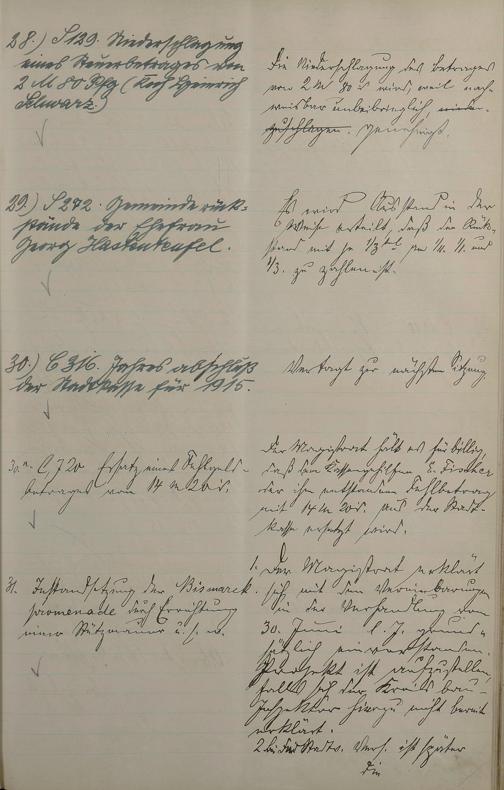 28.) S 129. Niederschlagung
eines Steuerbetrages von
2 M 80 Pfg (Koch Heinrich
Schwarz)
Die Niederschlagung des Betrages
von 2 M 80 d wird, weil nach-
weisbar unbeibringlich, nieder-
zuschlagen. genehmigt.
29.) S 272. Gemeinderück-
stände der Ehefrau
Georg Hassenteufel.
Es wird Ausstand in der
Weise erteilt, daß der Rück-
stand mit je 1/3tel per 1/1. 1/2. und
1/3. zu zahlen ist.
30.) C 316. Jahresabschluß
der Stadtkasse für 1915.
Vertagt zur nächsten Sitzung.
30.a. C 720 Ersatz eines Fehlgeld-
betrages von 14 M 20 d.
Der Magistrat hält es für billig,
daß dem Kassengehilfen E.
der ihm entstandene Fehlbetrag
mit 14 M 20 d. aus der Stadt-
kasse ersetzt wird.
31. Instandsetzung der Bismarck
promenade durch Errichtung
einer Stützmauer u. s. w.
1. Der Magistrat erklärt
sich mit den Vereinbarungen
in der Verhandlung vom
30. Juni l. J. grund-
sätzlich einverstanden.
Projekt ist aufzustellen,
falls sich der Kreisbau-
Inspektor hierzu nicht bereit
erklärt.
2 bei der Stadtv. Vers. ist später
die